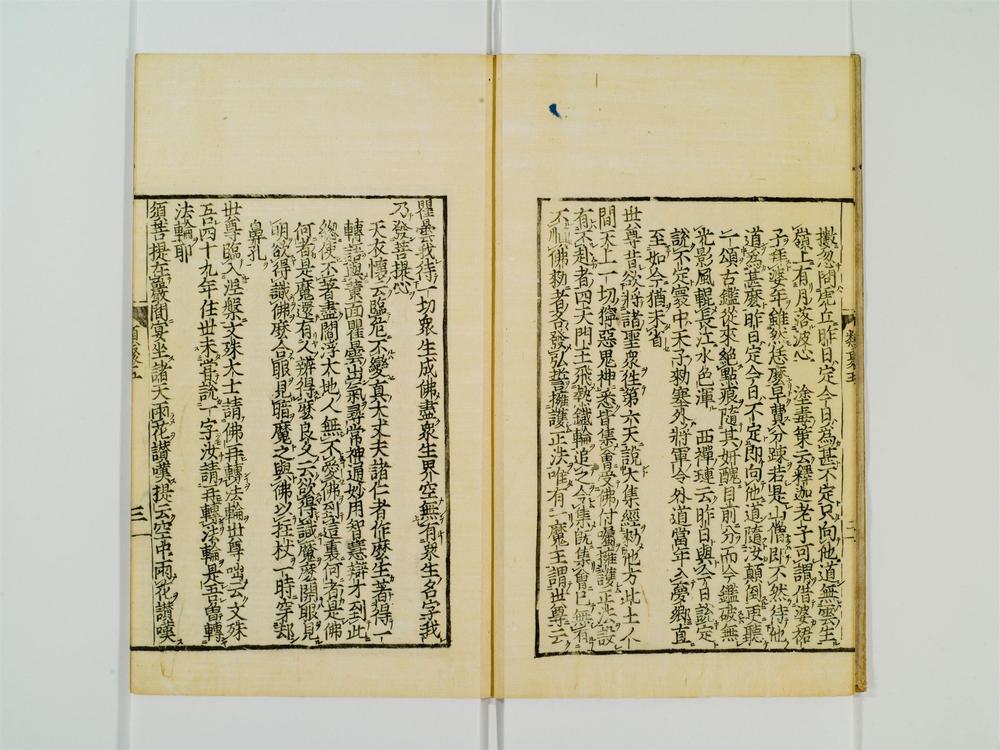 擬忽問虎丘昨日定今日為甚不定只向他道無雲生
嶺上有月落波心　塗毒策云釋迦老子可謂借婆裙
子拜婆年雖然恁麼早費分疎若是山僧即不然待他
道為甚麼昨日定今日不定即向他道隨汝顛倒更聽
一頌古鑑從來絕點痕隨其妍醜目前分而今鑑破無
光影風輥長江水色渾　西禪璉云昨日與今日說定
說不定寰中天子勑塞外將軍令外道當年念鄉直
至如今猶未省
世尊昔欲將諸聖眾徃第六天說大集經勑他方此土人
間天上一切獰惡鬼神悉皆集會受佛付囑擁護正法設
有不赴者四天門王飛熱鐵輪追之令集既集會已無有
不順佛勑者各發弘誓擁護正法唯有一魔王謂世尊云
瞿曇我待一切眾生成佛盡眾生界空無有眾生名字我
乃發菩提心
天衣懷云臨危不變真大丈夫諸仁者作麼生著得一
轉語與黃面瞿曇出氣尋常神通妙用智慧辯才到此
總使不著盡閻浮大地人無不愛佛到這裏何者是佛
何者是魔還有人辨得麼良久云欲得識魔麼開眼見
明欲得識佛麼合眼見暗魔之與佛以拄杖一時穿却
鼻孔
世尊臨入涅槃文殊大士請佛再轉法輪世尊咄云文殊
吾四十九年住世未嘗說一字汝請再轉法輪是吾曾轉
法輪耶
須菩提在巖間宴坐諸天雨花讚嘆提云空中雨花讚嘆
三